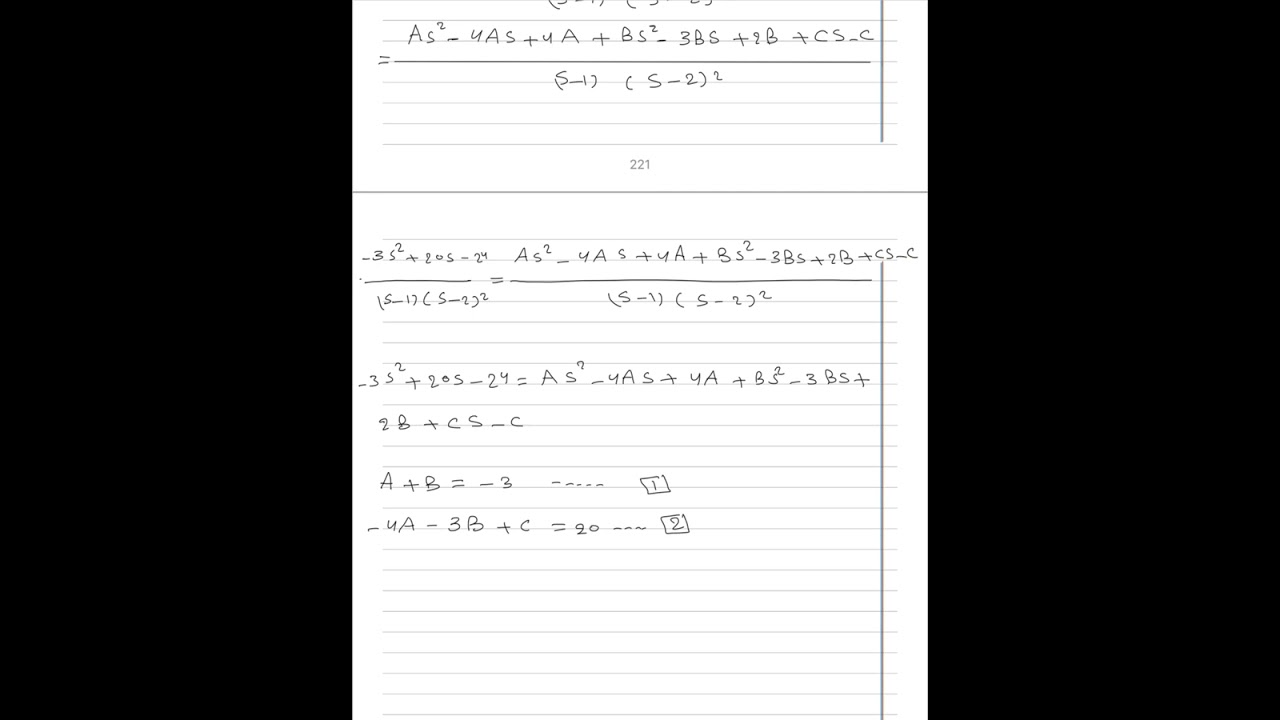 As² - 4As + 4A + Bs² - 3Bs + 2B + CS - C
=
(S-1) (S-2)²
221
-3s² + 20s - 24 = As² - 4As + 4A + Bs² - 3Bs + 2B + CS - C
(S-1)(S-2)² (S-1) (S-2)²
-3s² + 20s - 24 = As² - 4As + 4A + Bs² - 3Bs +
2B + CS - C
A + B = -3 ----- 1
-4A - 3B + C = 20 ---- 2